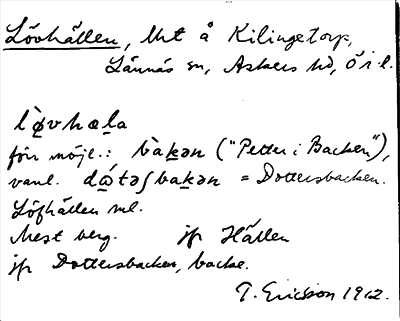 Lövhällen, Mt å Kilingetorp,
Lännäs sn, Askers hd, Ö i l.
lø̀vhæla
förr möjl.: bàkən ("Petter i Backen"),
vanl. dɷ́təʃbakən = Dottersbacken.
Löfhällen ml.
Mest berg. jfr Hällen
jfr Dottersbacken, backe.
T. Ericsson 1912.